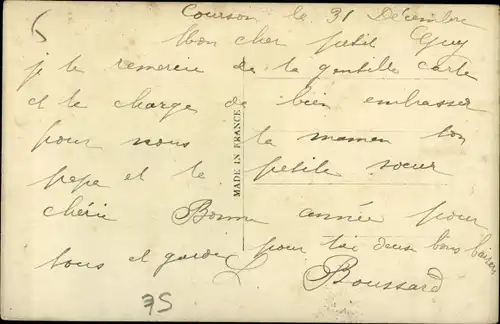 Courson le 31 Décembre
Mon cher petit Guy
je te remercie de ta gentille carte
et te charge de bien embrasser
pour nous ta maman ton
pepe et ta petite sœur
chérie Bonne année pour
tous et garde pour toi deux bons baisers
Boussard
MADE IN FRANCE
75